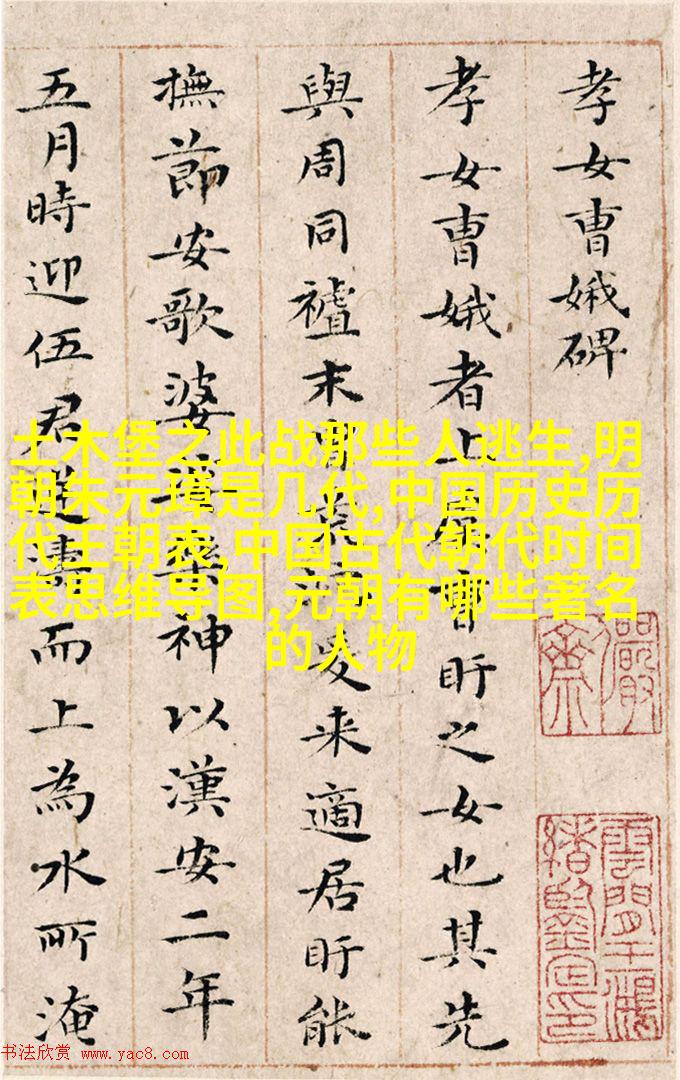 孝女曹娥碑
孝女曹娥者上虞曹盱之女也其先
與周同末胄荒沉爰来適居盱能
撫節安歌婆娑樂神以漢安二年
五月時迎伍君逆濤而上為水所淹
土木堡之此战那些人逃生,明
朝朱元璋是几代,中国历史历
代王朝表,中国古代朝代时间
表思维导图,元朝有哪些著名
的人物
雲間王鴻
緒鑒定印
书法欣赏 www.yac8.com